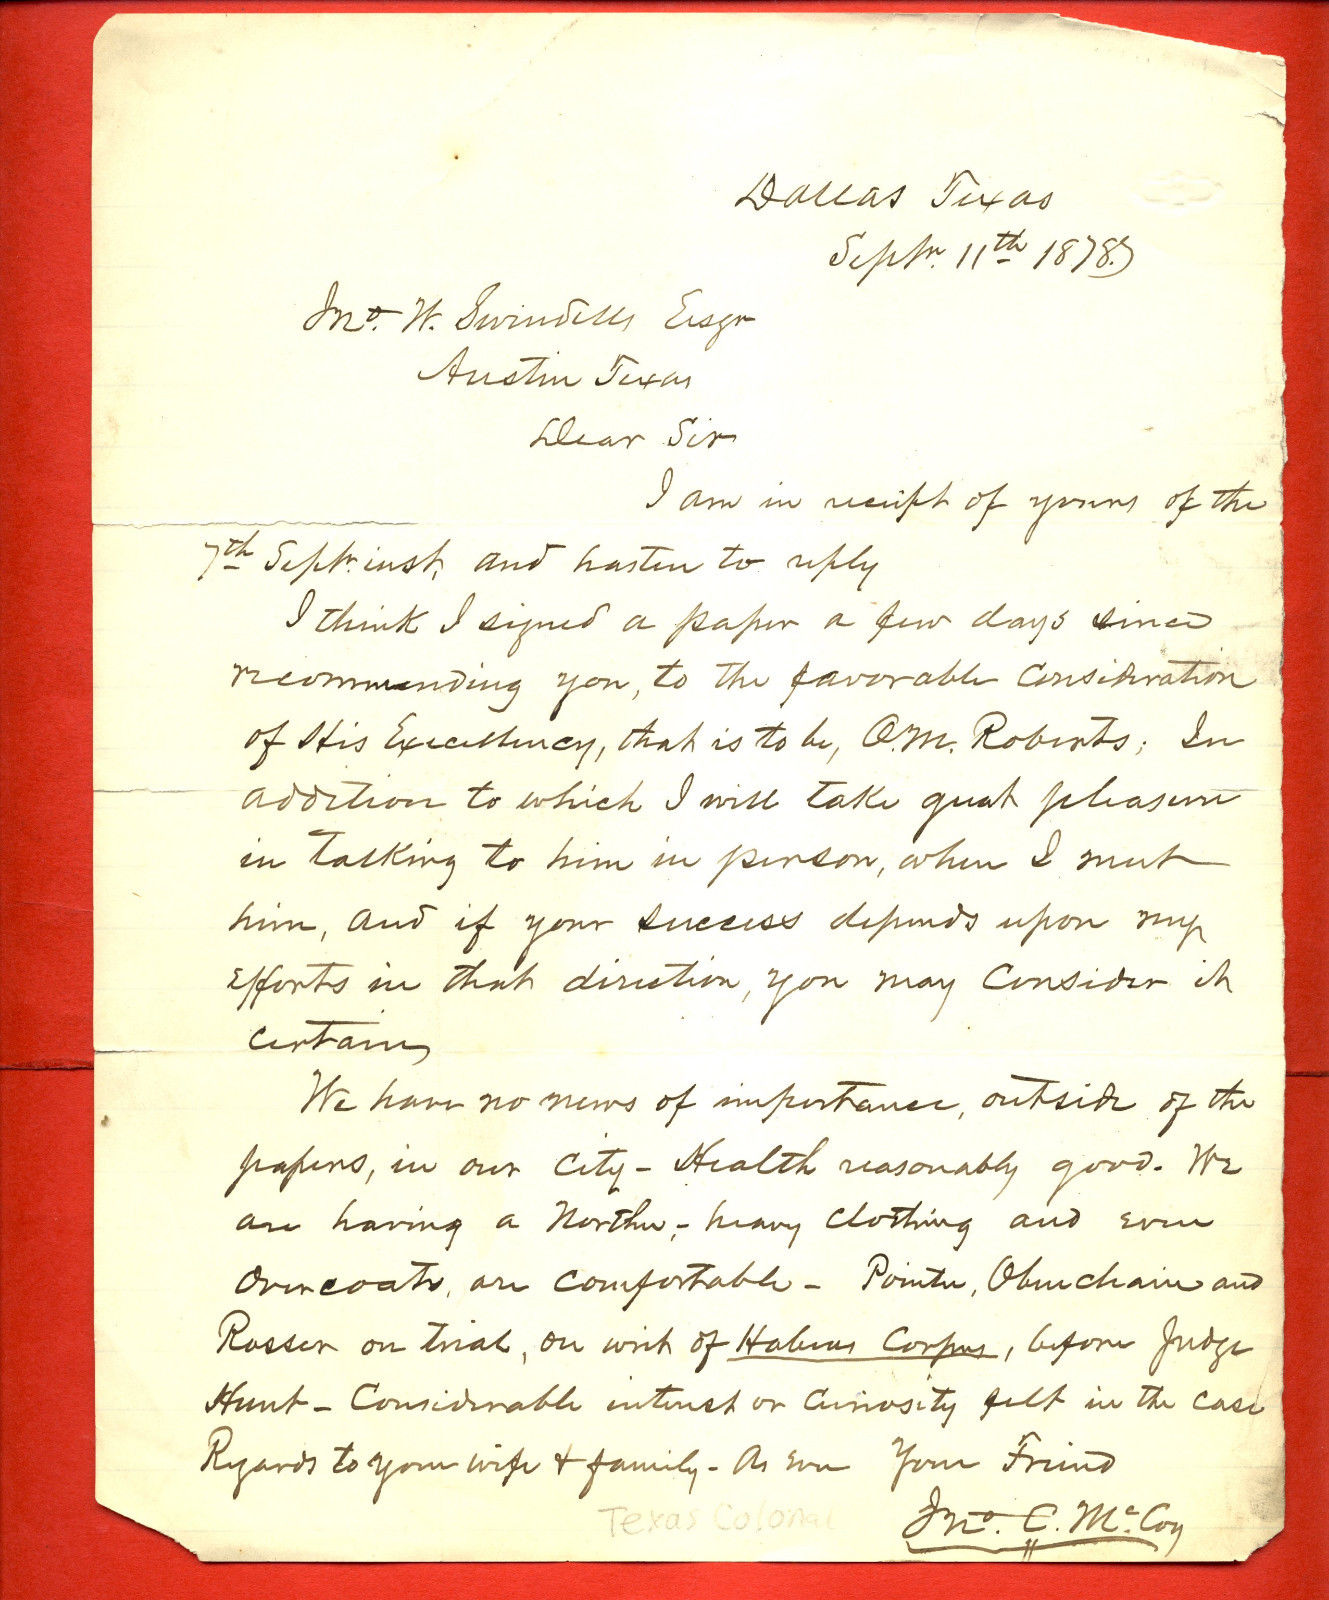 Dallas Texas
Septr. 11th 1878.
Jno. W. Swindells Esqr
Austin Texas
Dear Sir
I am in receipt of yours of the
7th Septr. inst, and hasten to reply
I think I signed a paper a few days since
recommending you, to the favorable consideration
of His Excellency, that is to be, O.M. Roberts; In
addition to which I will take great pleasure
in talking to him in person, when I meet
him, and if your success depends upon my
efforts in that direction, you may consider it
certain,
We have no news of importance, outside of the
papers, in our city - Health reasonably good. We
are having a Norther, - heavy clothing and even
overcoats, are comfortable - Pointer, Obenchain and
Rosser on trial, on writ of Habeas Corpus, before Judge
Hunt - Considerable interest or curiosity felt in the case
Regards to your wife & family - As ever Your Friend
Jno. C. McCoy
Texas Colonial